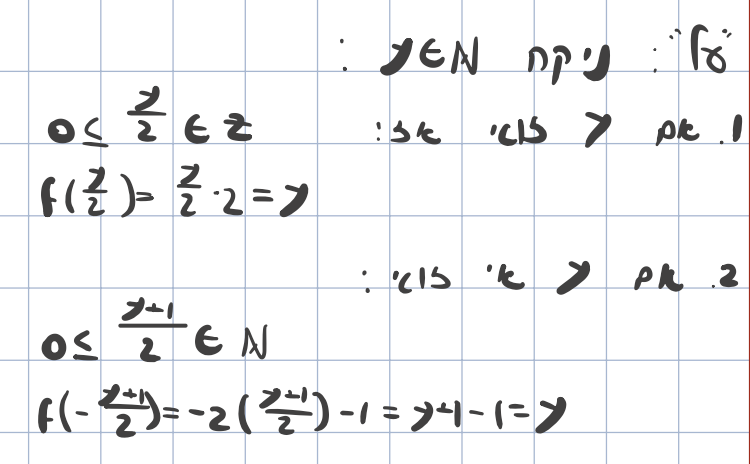 "על": ניקח y∈N :
1. אם y זוגי אז: 0≤ y/2 ∈ Z
f(y/2)= y/2 ·2 = y
2. אם y אי זוגי :
0≤ (y+1)/2 ∈ N
f(-(y+1)/2)= -2((y+1)/2) -1 = y+1-1 = y